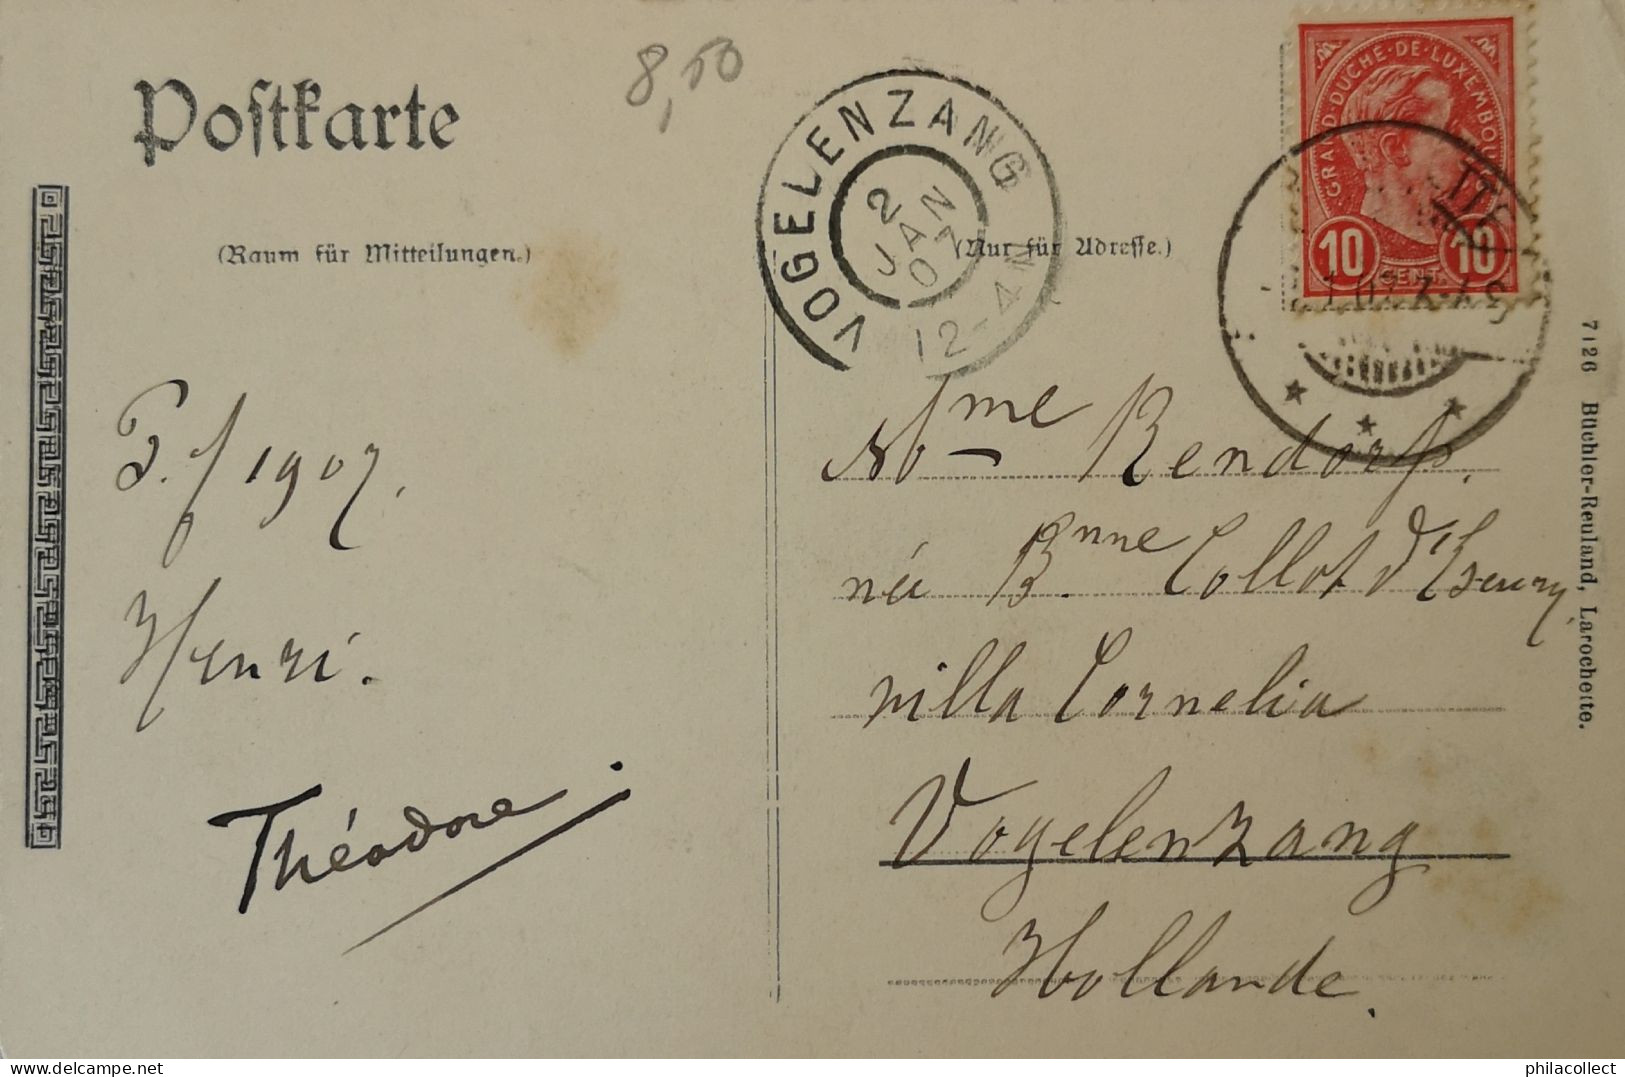 8,50
Postkarte
(Raum für Mitteilungen.)
(Nur für Adresse.)
VOGELENZANG
2 JAN 07
12-4N
GRAND-DUCHÉ-DE-LUXEMBOURG
10 CENT. 10
TTE
P. f 1907.
Henri.
Théodore
Mme Rendorp.
née Bnne Collot d'Escury
villa Cornelia
Vogelenzang
Hollande.
7126 Büchler-Reuland, Larochette.
philacollect